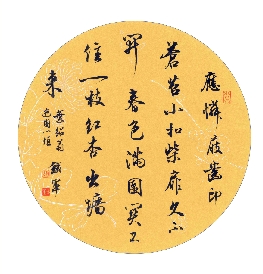 應憐屐齒印
蒼苔小扣柴扉久不
開春色滿園關不
住一枝紅杏出牆
來
葉紹翁
遊園不值